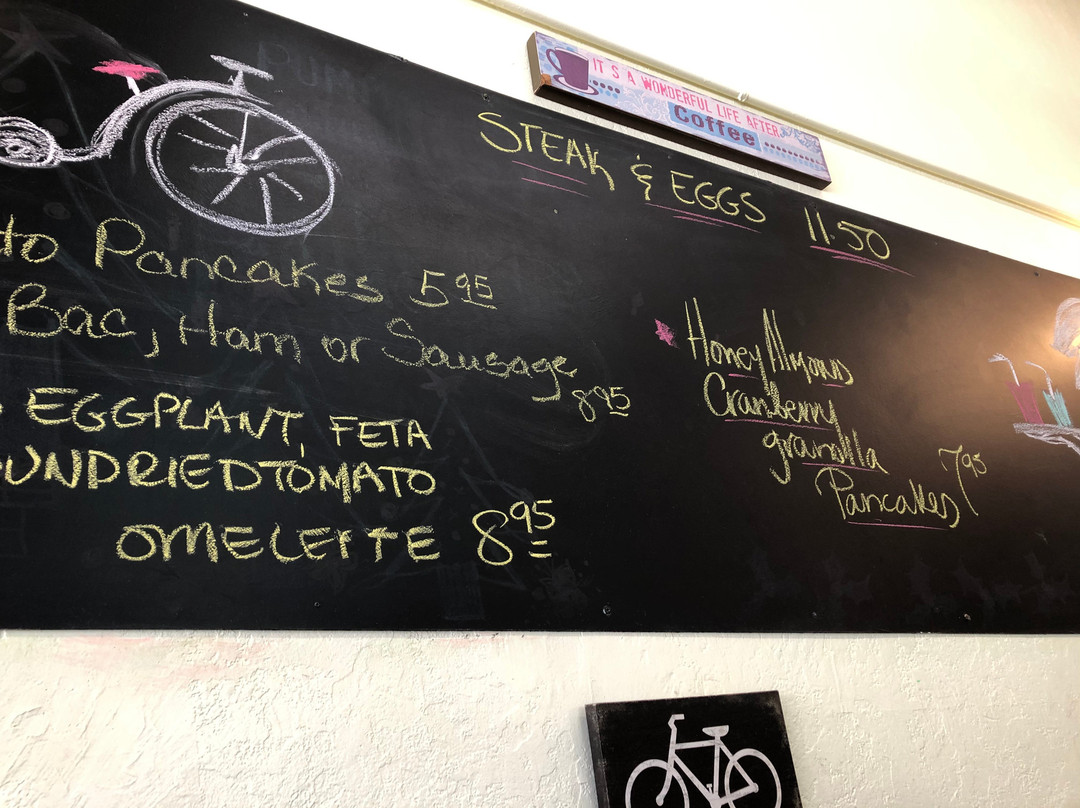 IT'S A WONDERFUL LIFE AFTER
Coffee
STEAK & EGGS 11.50
to Pancakes 5.95
Bac, Ham or Sausage
8.95
EGGPLANT, FETA
SUNDRIED TOMATO
OMELETTE 8.95
Honey Almond
Cranberry
granolla
Pancakes 7.95